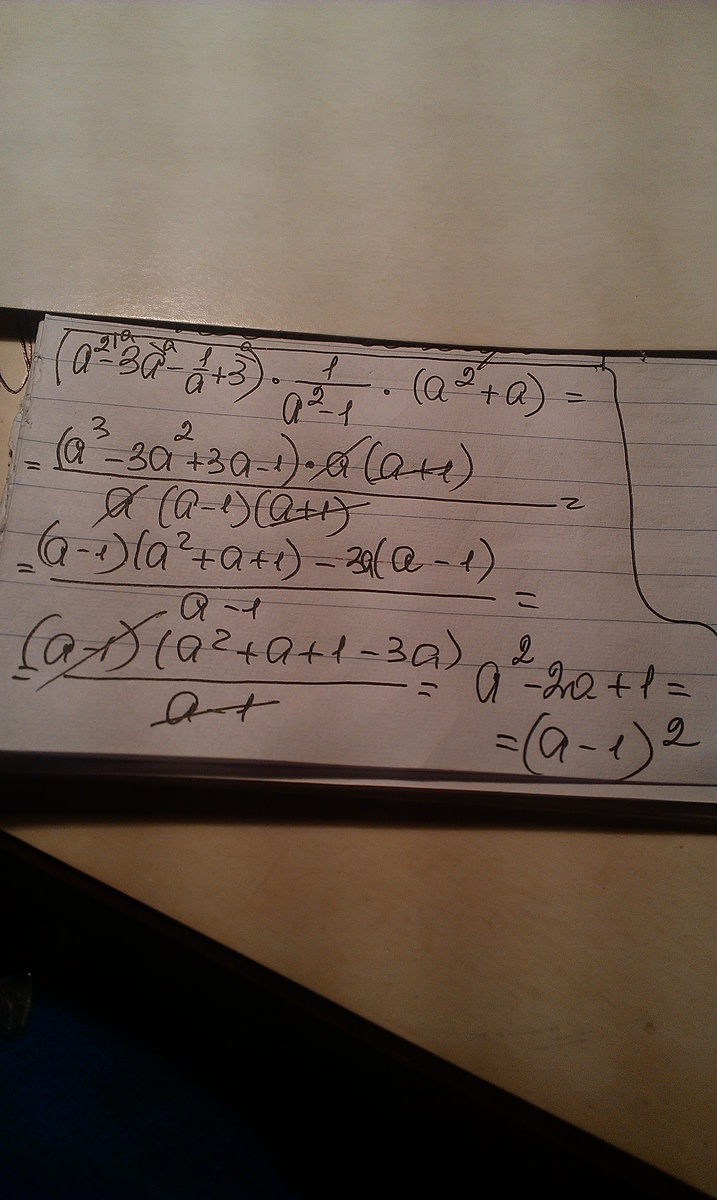 (a²\a - 3a\a - 1/a + 3\a) · 1/(a²-1) · (a²+a) =
= (a³ - 3a² + 3a - 1) · a(a+1) / a(a-1)(a+1) =
= (a-1)(a²+a+1) - 3a(a-1) / a-1 =
= (a-1)(a²+a+1-3a) / a-1 = a²-2a+1 =
= (a-1)²